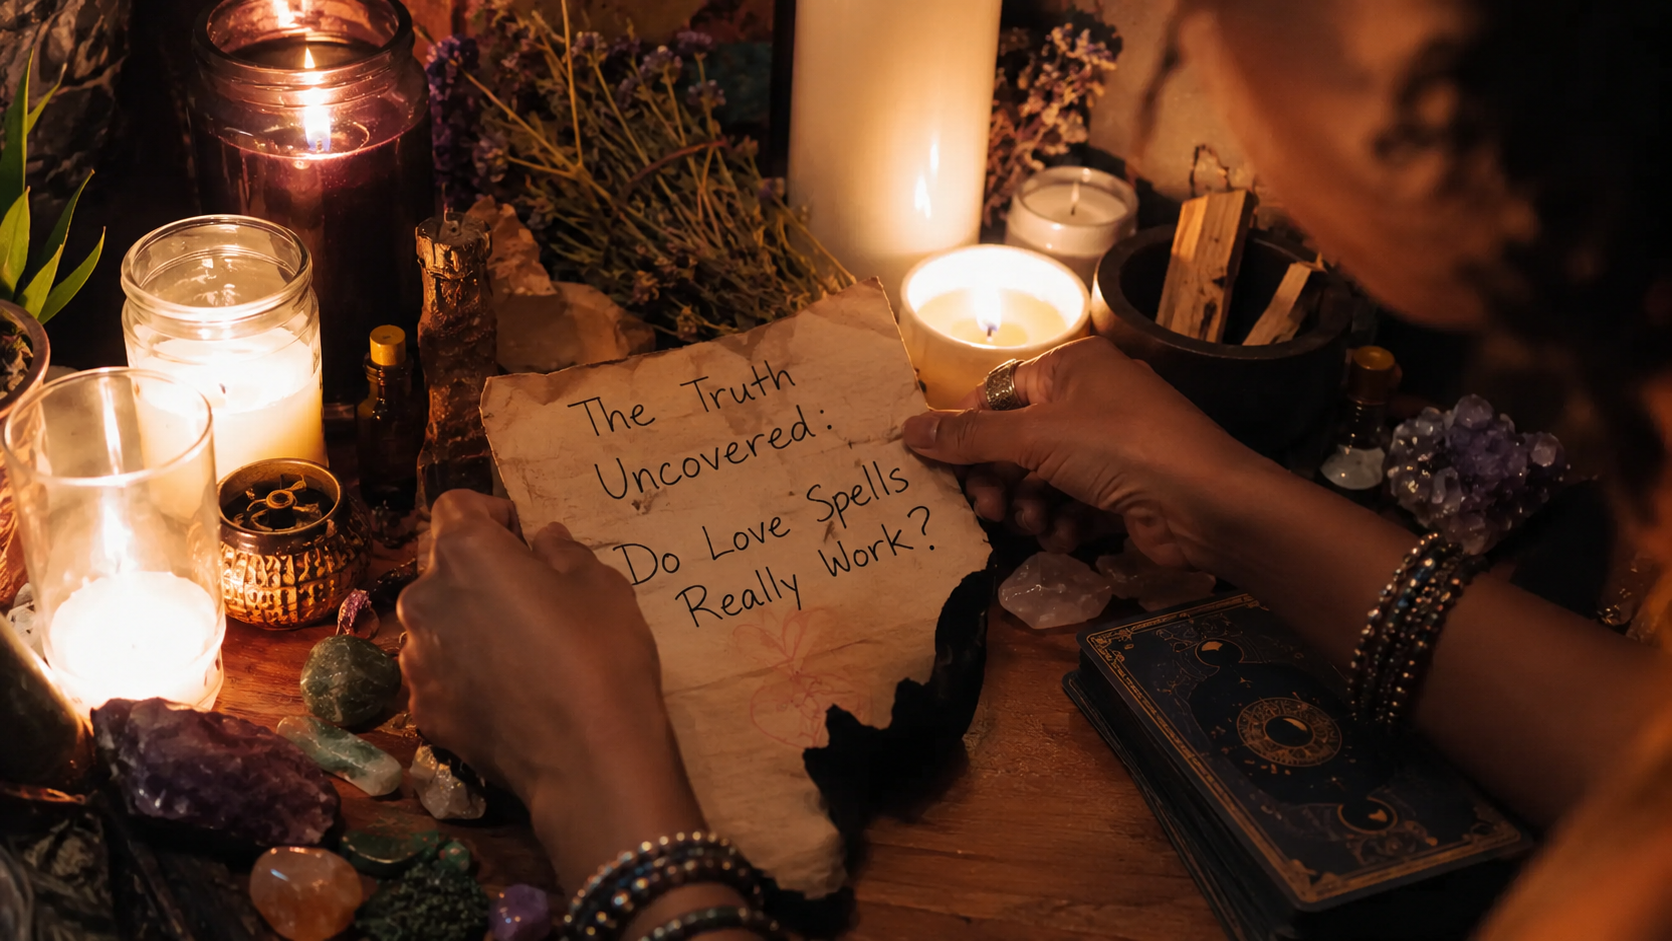 The Truth
Uncovered:
Do Love Spells
Really Work?